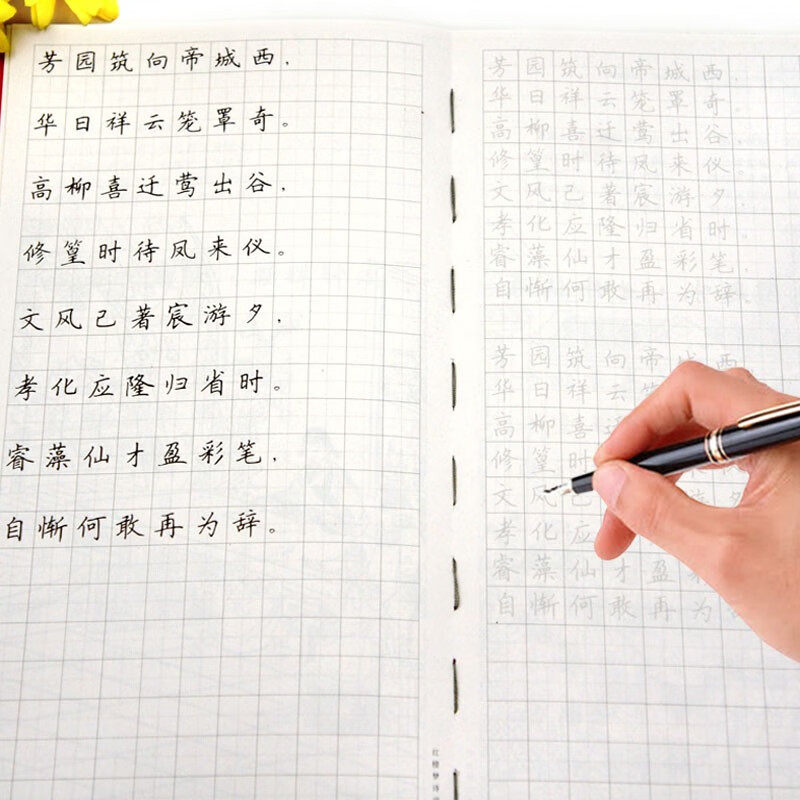 芳园筑向帝城西，
华日祥云笼罩奇。
高柳喜迁莺出谷，
修篁时待凤来仪。
文风已著宸游夕，
孝化应隆归省时。
睿藻仙才盈彩笔，
自惭何敢再为辞。
芳园筑向帝城西，
华日祥云笼罩奇。
高柳喜迁莺出谷，
修篁时待凤来仪。
文风已著宸游夕，
孝化应隆归省时。
睿藻仙才盈彩笔，
自惭何敢再为辞。
芳园筑向帝城西
华日祥云笼
高柳喜迁
修篁时
文风已 游夕
孝化应
睿藻仙才盈
自惭何敢再为
红楼梦诗词